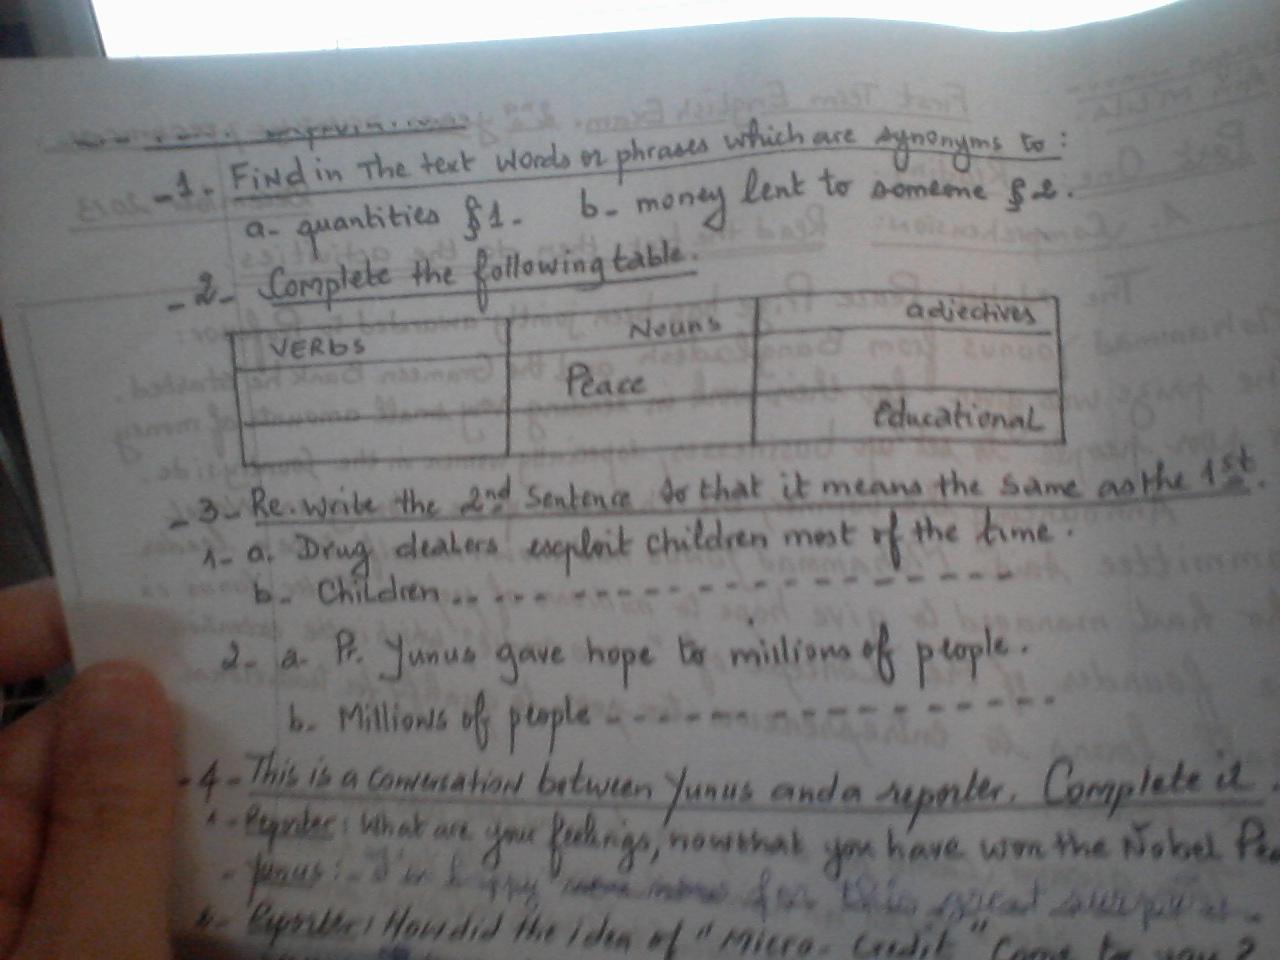 -1. Find in The text words or phrases which are synonyms to:
a- quantities §1- b- money lent to someone §2.
-2- Complete the following table.
VERBs Nouns adjectives
Peace
Educational
-3- Re.write the 2nd Sentence so that it means the same as the 1st.
1- a. Drug dealers exploit children most of the time.
b- Children
2- a- Pr. Yunus gave hope to millions of people.
b. Millions of people
-4- This is a conversation between Yunus and a reporter. Complete it.
Reporter: What are your feelings, now that you have won the Nobel Pea
- Yunus: I'm happy for this great
Reporter: How did the idea of "Micro-Credit" Come to you?